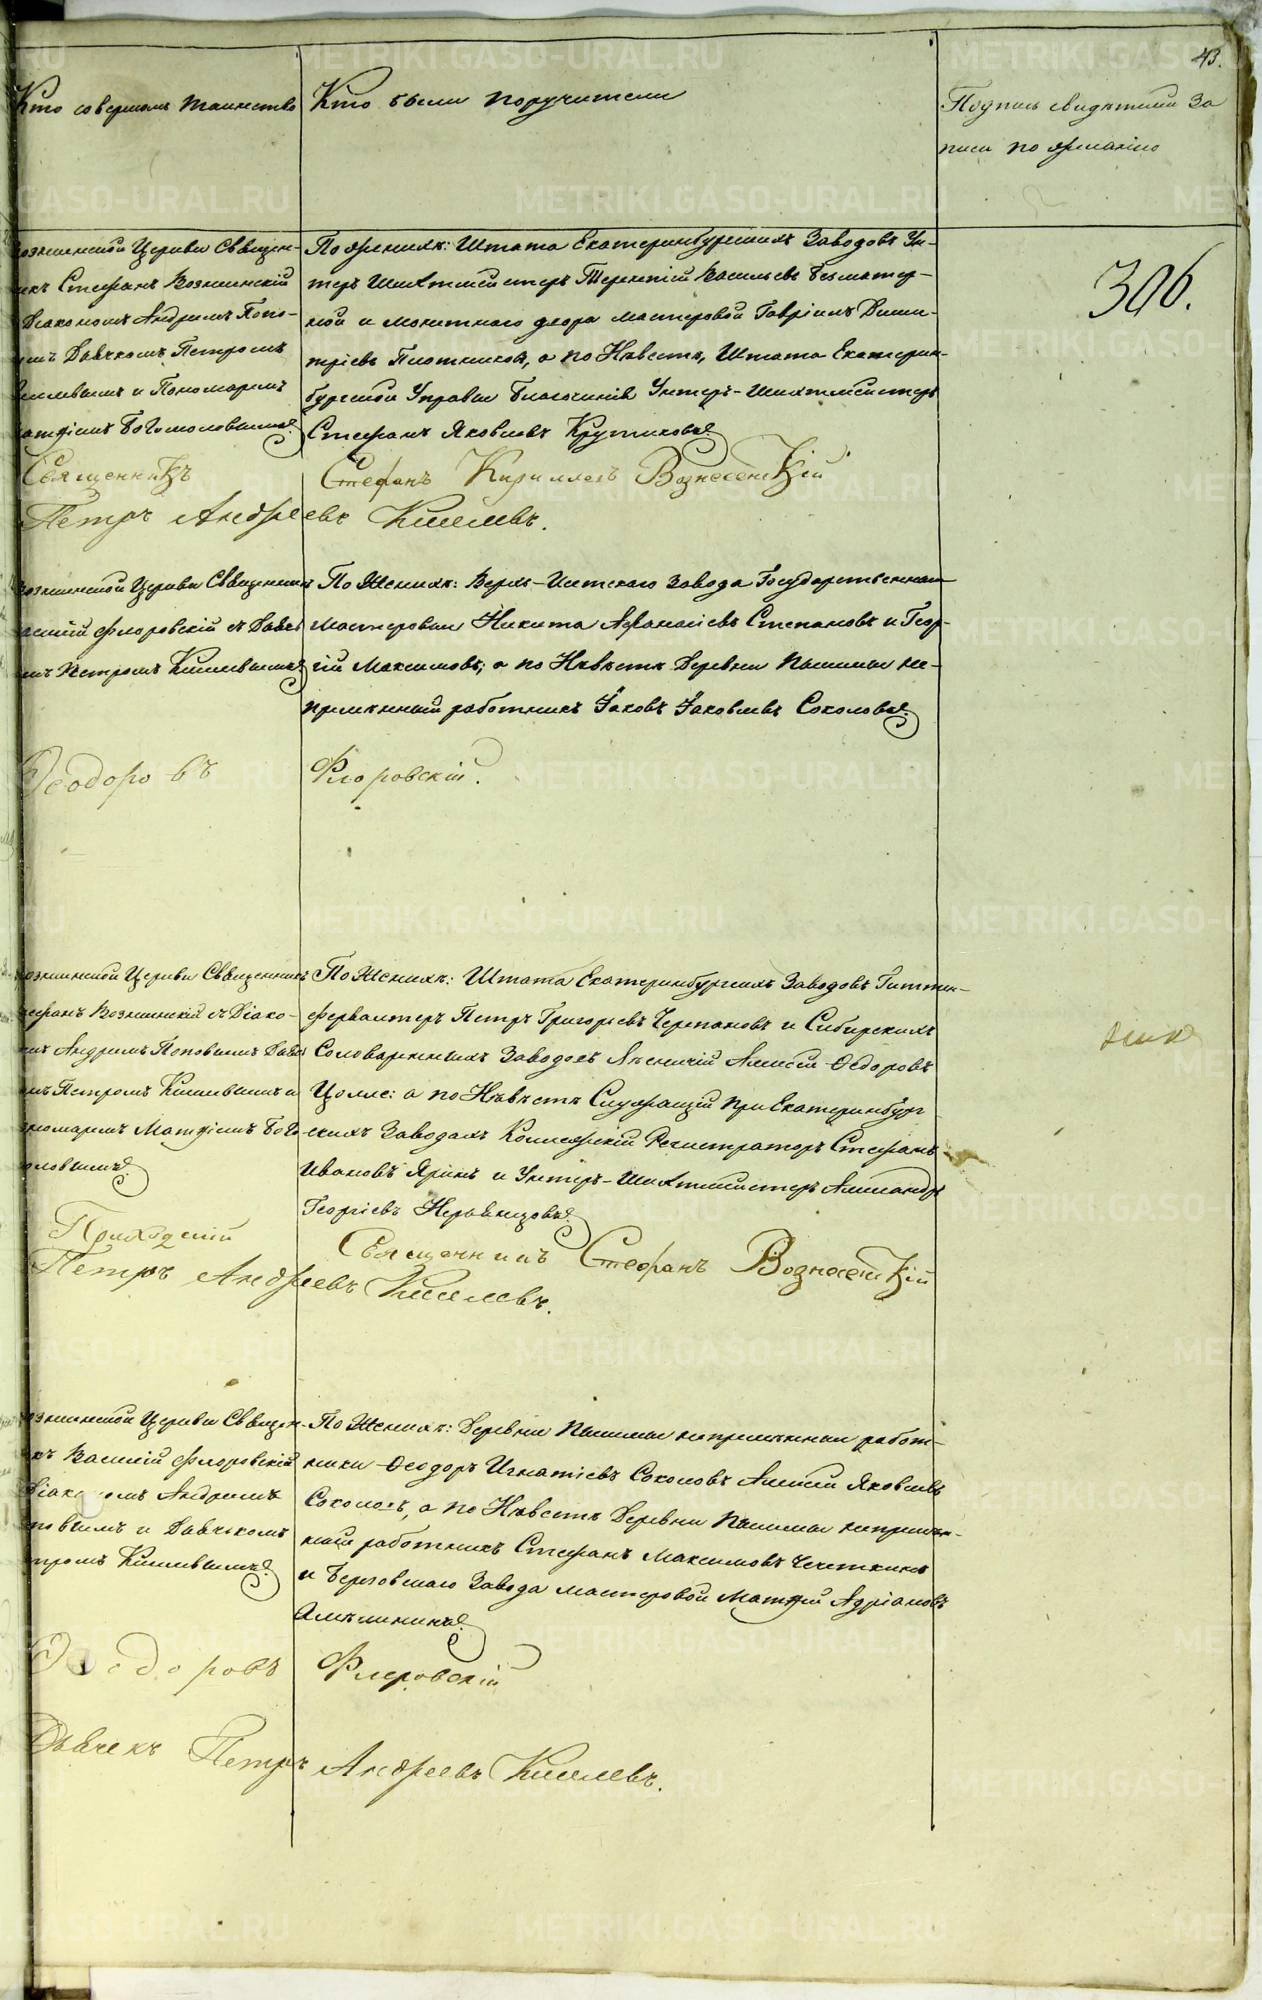 43.
Кто совершалъ таинство
Кто были поручители
Подпись свидѣтелей за
писи по желанію
306.
Вознесенской Церкви Священ-
никъ Стефанъ Вознесенскій
Діакономъ Андреемъ Попо-
Дьячкомъ Петромъ
и Пономаремъ
Боголюбовымъ
По женихѣ: Штата Екатеринбургскихъ Заводовъ Ун-
теръ Шихтмейстеръ Терентій Васильевъ
и монетнаго двора мастеровой Гавріилъ Дими-
тріевъ Плотниковъ, а по Невѣстѣ, Штата Екатерин-
бургской Управы Благочинія Унтеръ-Шихтмейстеръ
Стефанъ Яковлевъ Крутиковъ
Священникъ Стефанъ Кирилловъ Вознесенскій
Петръ Андреевъ Киселевъ.
Вознесенской Церкви Священникъ
Флоровскій съ Дьячк
Петромъ Киселевымъ
По Женихѣ: Верхъ-Исетскаго завода Государственные
Мастеровые Никита Афанасіевъ Степановъ и Геор-
гій Максимовъ; а по Невѣстѣ Деревни Пышмы не-
премѣнный работникъ Іаковъ Іаковлевъ Соколовъ
Ѳеодоровъ Флоровскій.
Вознесенской Церкви Священникъ
Стефанъ Вознесенскій съ Діако-
Андреемъ Поповымъ Дьяч
Петромъ Киселевымъ и
Пономаремъ Матфіемъ Бого-
По Женихѣ: Штата Екатеринбургскихъ Заводовъ Гиттен-
ферваитеръ Петръ Григорьевъ Черепановъ и Сибирскихъ
Соловаренныхъ Заводовъ Лѣсничій Алексѣй Ѳедоровъ
а по Невѣстѣ Служащій при Екатеринбург
скихъ Заводахъ Коллежскій Регистраторъ Стефанъ
Ивановъ Яринъ и Унтеръ-Шихтмейстеръ Александръ
Георгіевъ
Приходскій Священникъ Стефанъ Вознесенскій
Петръ Андреевъ Киселевъ.
Вознесенской Церкви Священ-
никъ Василій Флоровскій
Діакономъ Андреемъ
Поповымъ и Дьячкомъ
Петромъ Киселевымъ
По Женихѣ: Деревни Пышмы непремѣнные работ-
ники Ѳеодоръ Игнатіевъ Соколовъ Алексѣй Яковлевъ
Соколовъ, а по Невѣстѣ Деревни Пышмы непремѣн-
ный работникъ Стефанъ Максимовъ Чечеткинъ
и Березовскаго Завода мастеровой Матфій Адріановъ
Ѳеодоровъ Флеровскій
Дьячекъ Петръ Андреевъ Киселевъ.
METRIKI.GASO-URAL.RU